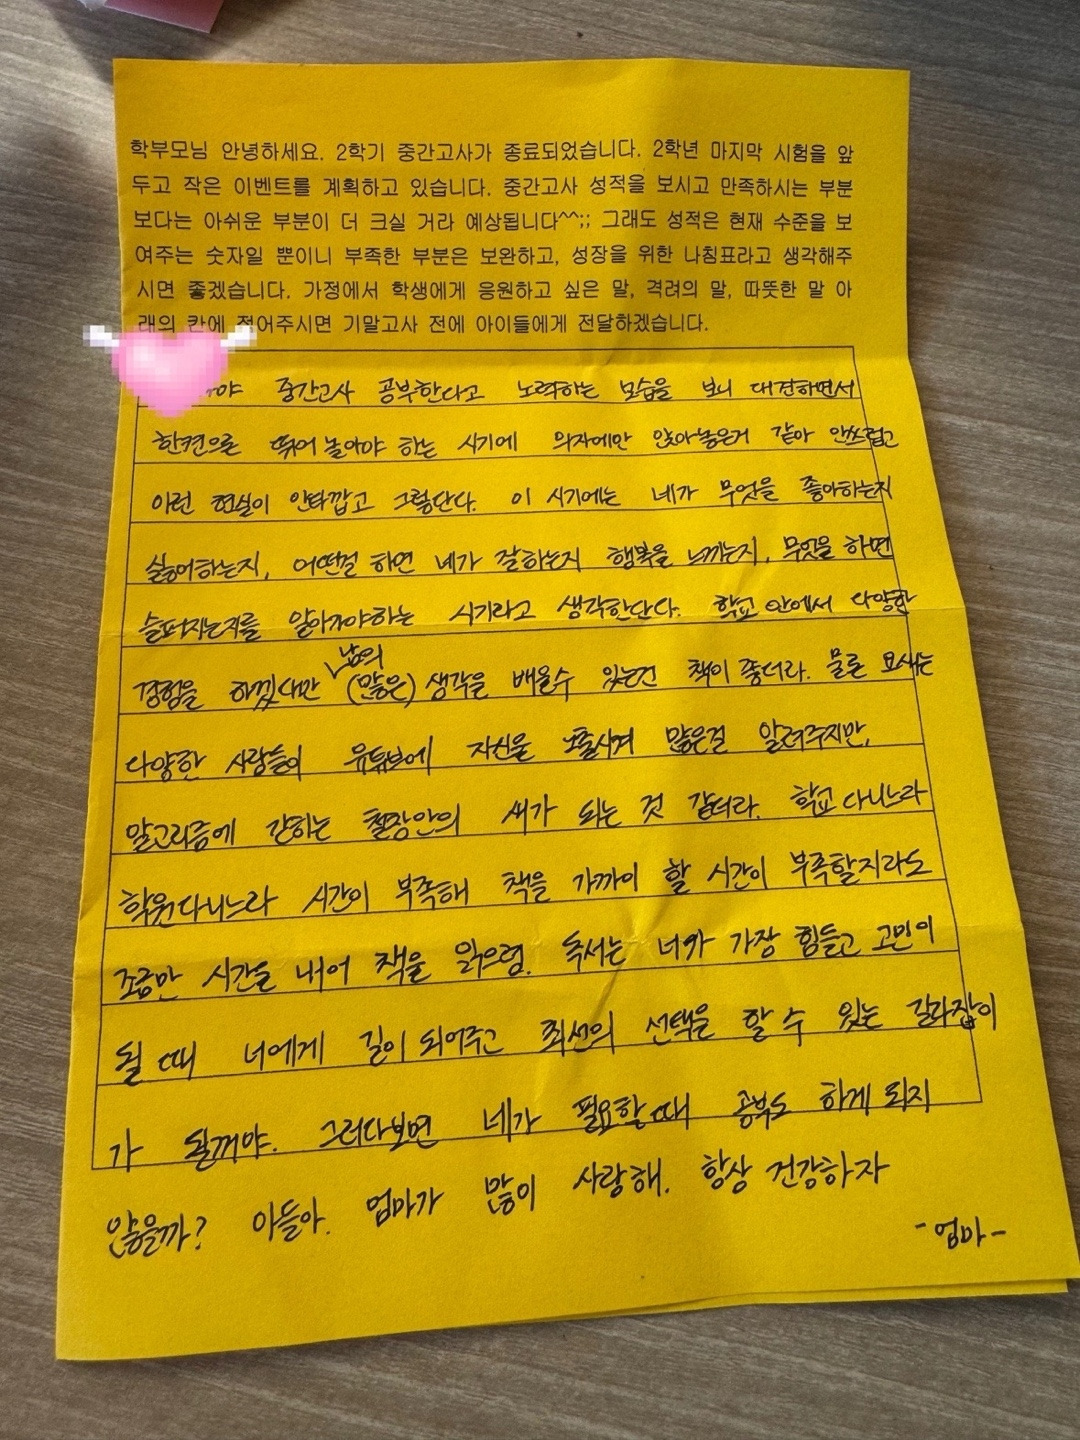 학부모님 안녕하세요. 2학기 중간고사가 종료되었습니다. 2학년 마지막 시험을 앞
두고 작은 이벤트를 계획하고 있습니다. 중간고사 성적을 보시고 만족하시는 부분
보다는 아쉬운 부분이 더 크실 거라 예상됩니다^^;; 그래도 성적은 현재 수준을 보
여주는 숫자일 뿐이니 부족한 부분은 보완하고, 성장을 위한 나침표라고 생각해주
시면 좋겠습니다. 가정에서 학생에게 응원하고 싶은 말, 격려의 말, 따뜻한 말 아
래의 칸에 적어주시면 기말고사 전에 아이들에게 전달하겠습니다.
야 중간고사 공부한다고 노력하는 모습을 보니 대견하면서
한켠으로 뛰어놀아야 하는 시기에 의자에만 앉아놓은거 같아 안쓰럽고
이런 현실이 안타깝고 그렇단다. 이 시기에는 네가 무엇을 좋아하는지
싫어하는지, 어떤걸 하면 네가 잘하는지 행복을 느끼는지, 무엇을 하면
슬퍼지는지를 알아가야하는 시기라고 생각한단다. 학교 안에서 다양한
경험을 하겠다만 남의 (많은) 생각을 배울수 있는건 책이 좋더라. 물론 요새는
다양한 사람들이 유튜브에 자신을 노출시켜 많은걸 알려주지만,
알고리즘에 갇히는 철장안의 새가 되는 것 같더라. 학교 다니느라
학원다니느라 시간이 부족해 책을 가까이 할 시간이 부족할지라도
조금만 시간을 내어 책을 읽으렴. 독서는 너가 가장 힘들고 고민이
될 때 너에게 길이 되어주고 최선의 선택을 할 수 있는 길라잡이
가 될꺼야. 그러다보면 네가 필요할때 공부도 하게 되지
않을까? 아들아. 엄마가 많이 사랑해. 항상 건강하자
-엄마-